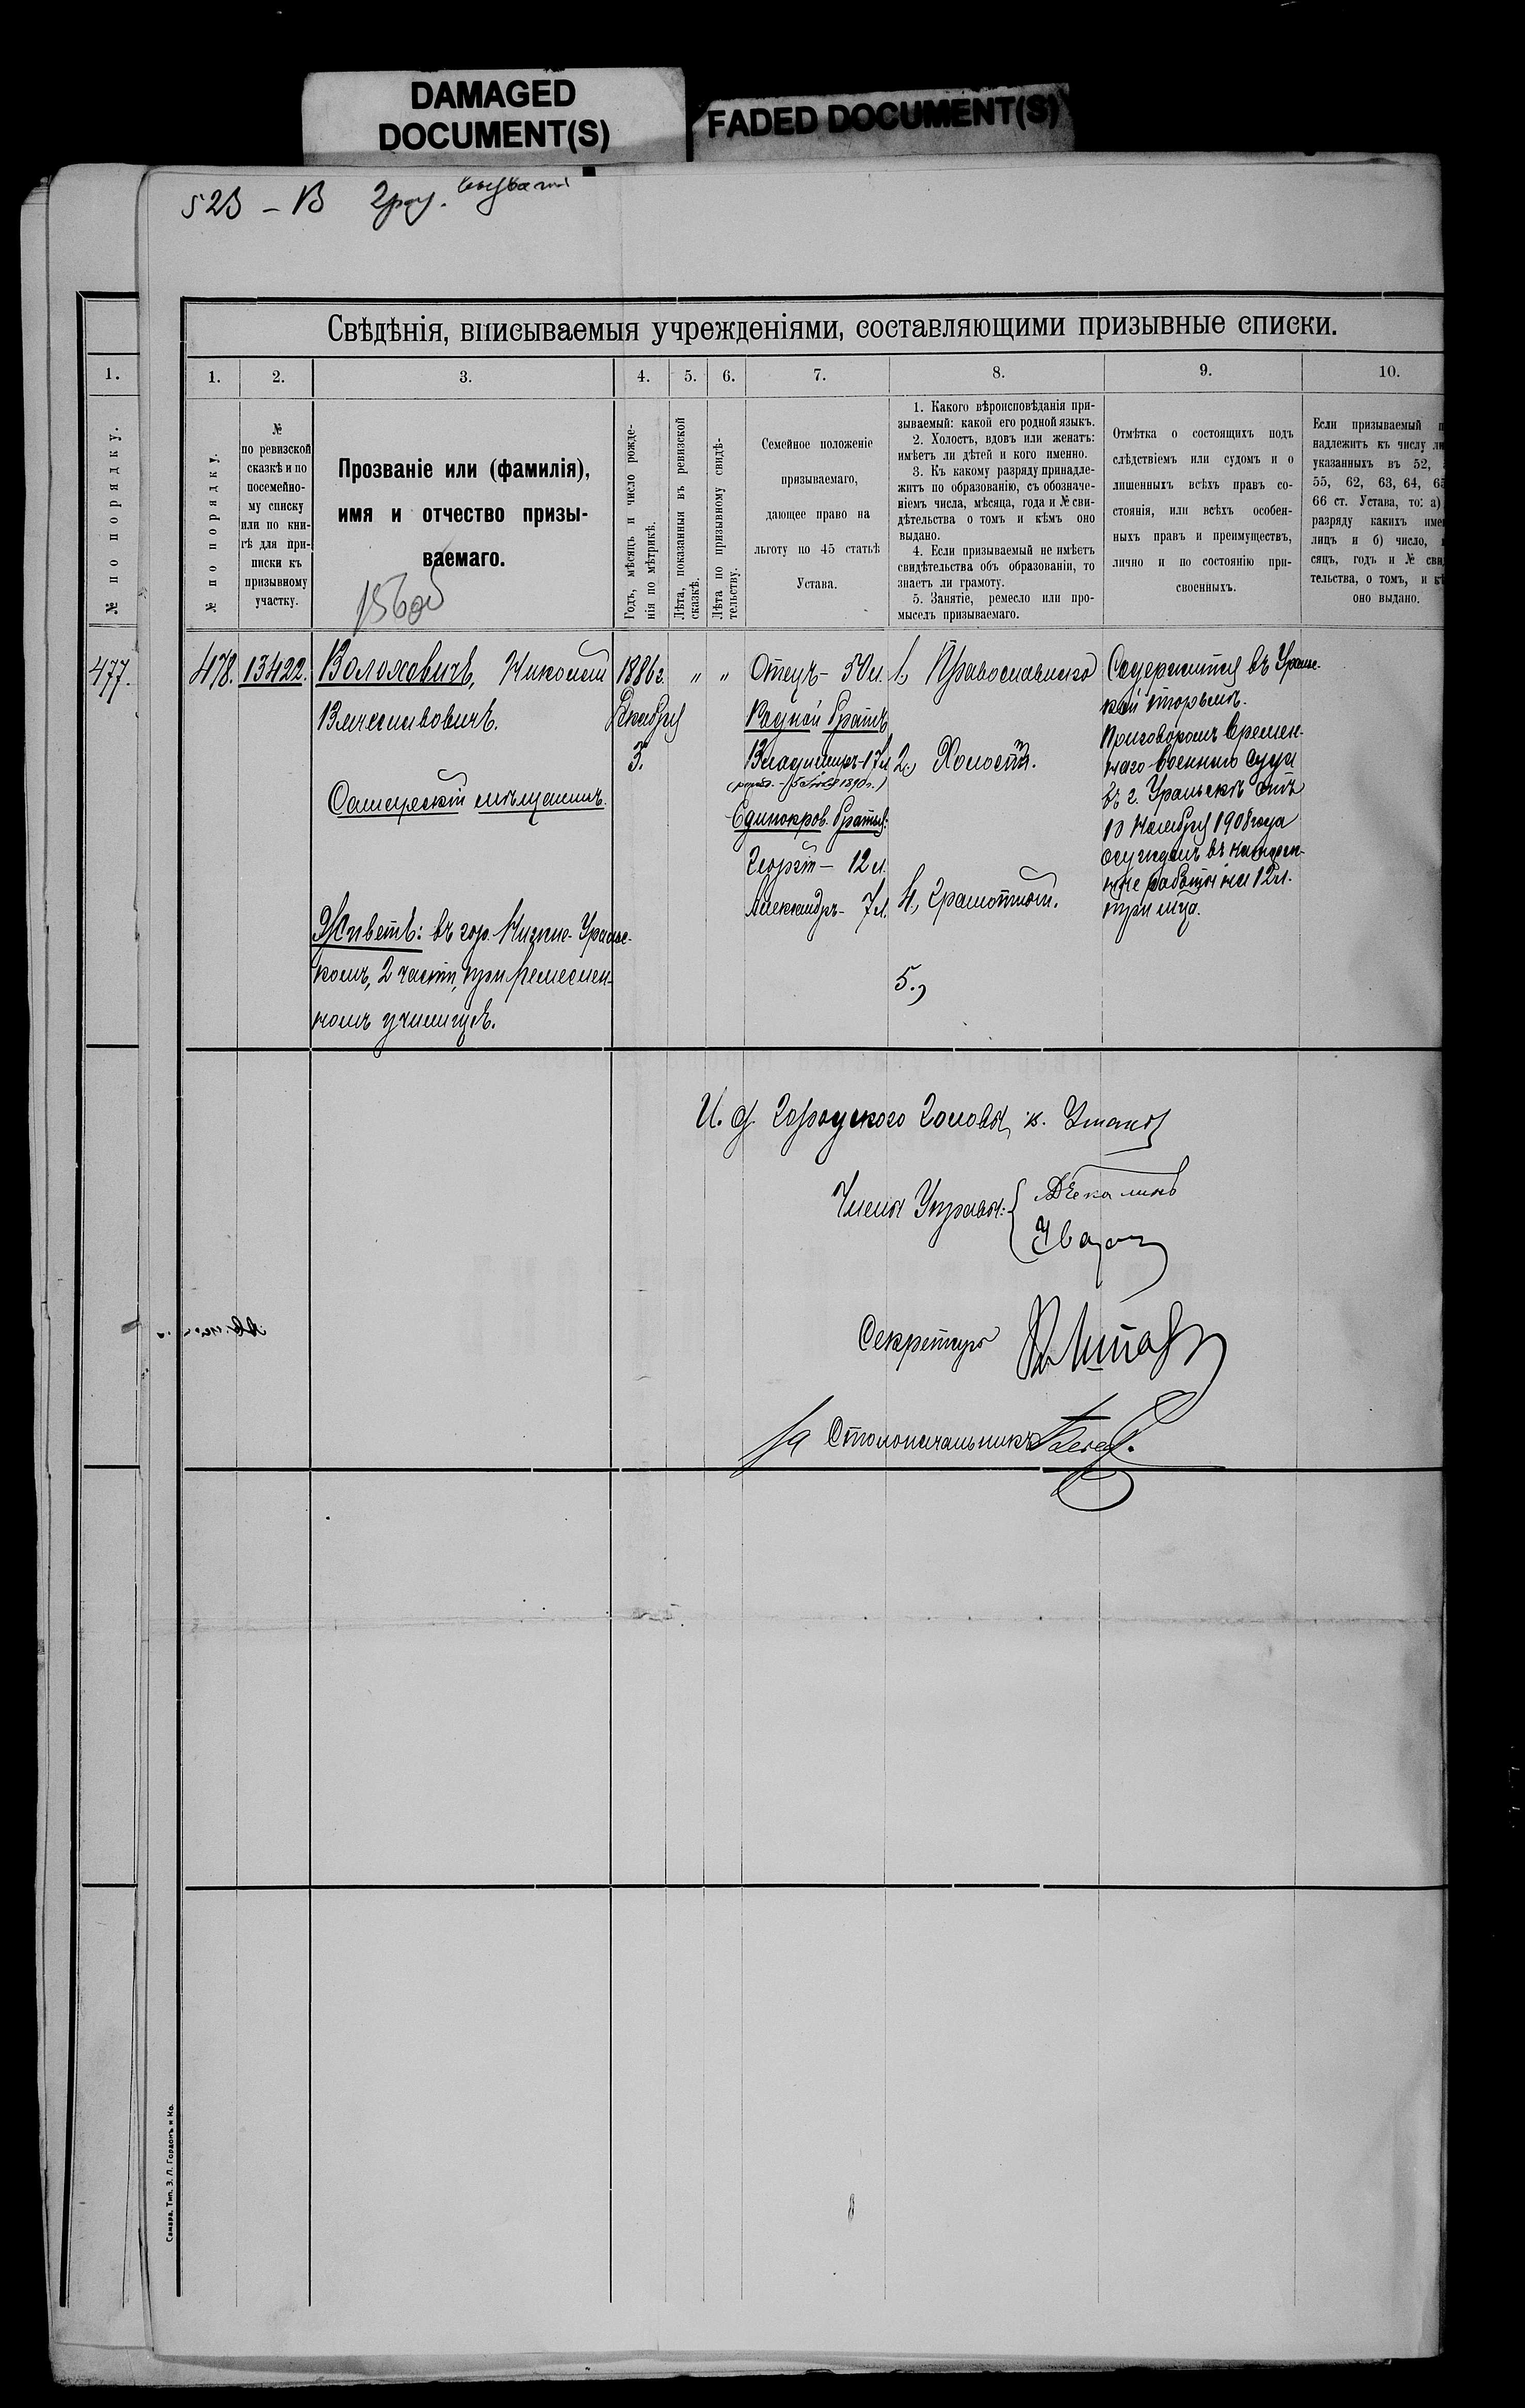 DAMAGED
DOCUMENT(S)
FADED DOCUMENT(S)
523 – В
Свѣдѣнія, вписываемыя учрежденіями, составляющими призывные списки.
1.
№ по порядку.
477.
1.
2.
3.
4.
5.
6.
7.
8.
9.
10.
№ по порядку.
№
по ревизской
сказкѣ и по
посемейно-
му списку
или по кни-
гѣ для при-
писки къ
призывному
участку.
Прозваніе или (фамилія),
имя и отчество призы-
ваемаго.
Годъ, мѣсяцъ и число рожде-
нія по метрикѣ.
Лѣта, показанныя въ ревизской
сказкѣ.
Лѣта по призывному свидѣ-
тельству.
Семейное положеніе
призываемаго,
дающее право на
льготу по 45 статьѣ
Устава.
1. Какого вѣроисповѣданія при-
зываемый: какой его родной языкъ.
2. Холостъ, вдовъ или женатъ:
имѣетъ ли дѣтей и кого именно.
3. Къ какому разряду принадле-
житъ по образованію, съ обозначе-
ніемъ числа, мѣсяца, года и № сви-
дѣтельства о томъ и кѣмъ оно
выдано.
4. Если призываемый не имѣетъ
свидѣтельства объ образованіи, то
знаетъ ли грамоту.
5. Занятіе, ремесло или про-
мыселъ призываемаго.
Отмѣтка о состоящихъ подъ
слѣдствіемъ или судомъ и о
лишенныхъ всѣхъ правъ со-
стоянія, или всѣхъ особен-
ныхъ правъ и преимуществъ,
лично и по состоянію при-
своенныхъ.
Если призываемый
надлежитъ къ числу
указанныхъ въ 52,
55, 62, 63, 64,
66 ст. Устава, то: а)
разряду какихъ
лицъ и б) число,
сяцъ, годъ и №
тельства, о томъ, и
оно выдано.
478.
13422.
Волоховичъ, Николай
Вячеславовичъ.
Самарскій мѣщанинъ.
Живетъ: въ гор. Уральс-
комъ, 2 части, при ремеслен-
номъ училищѣ.
1886 г.
Декабря
3.
„ „
Отецъ – 50 л.
Родной братъ
Владимиръ – 17 л.
1890 г.)
Единокров. братья:
Георгій – 12 л.
Александръ – 7 л.
1, Православнаго
2, Холостъ.
4, Грамотный.
5.,
Содержится въ Ураль-
кой тюрьмѣ.
Приговоромъ времен-
наго военнаго суда
въ г. Уральскѣ отъ
10 Ноября 1908 года
осужденъ въ каторж-
ные работы на 12 л.
И. д. Городского Головы,
Члены Управы:
Секретарь
За Столоначальника
Самара. Тип. З. Л. Гордонъ и Ко.